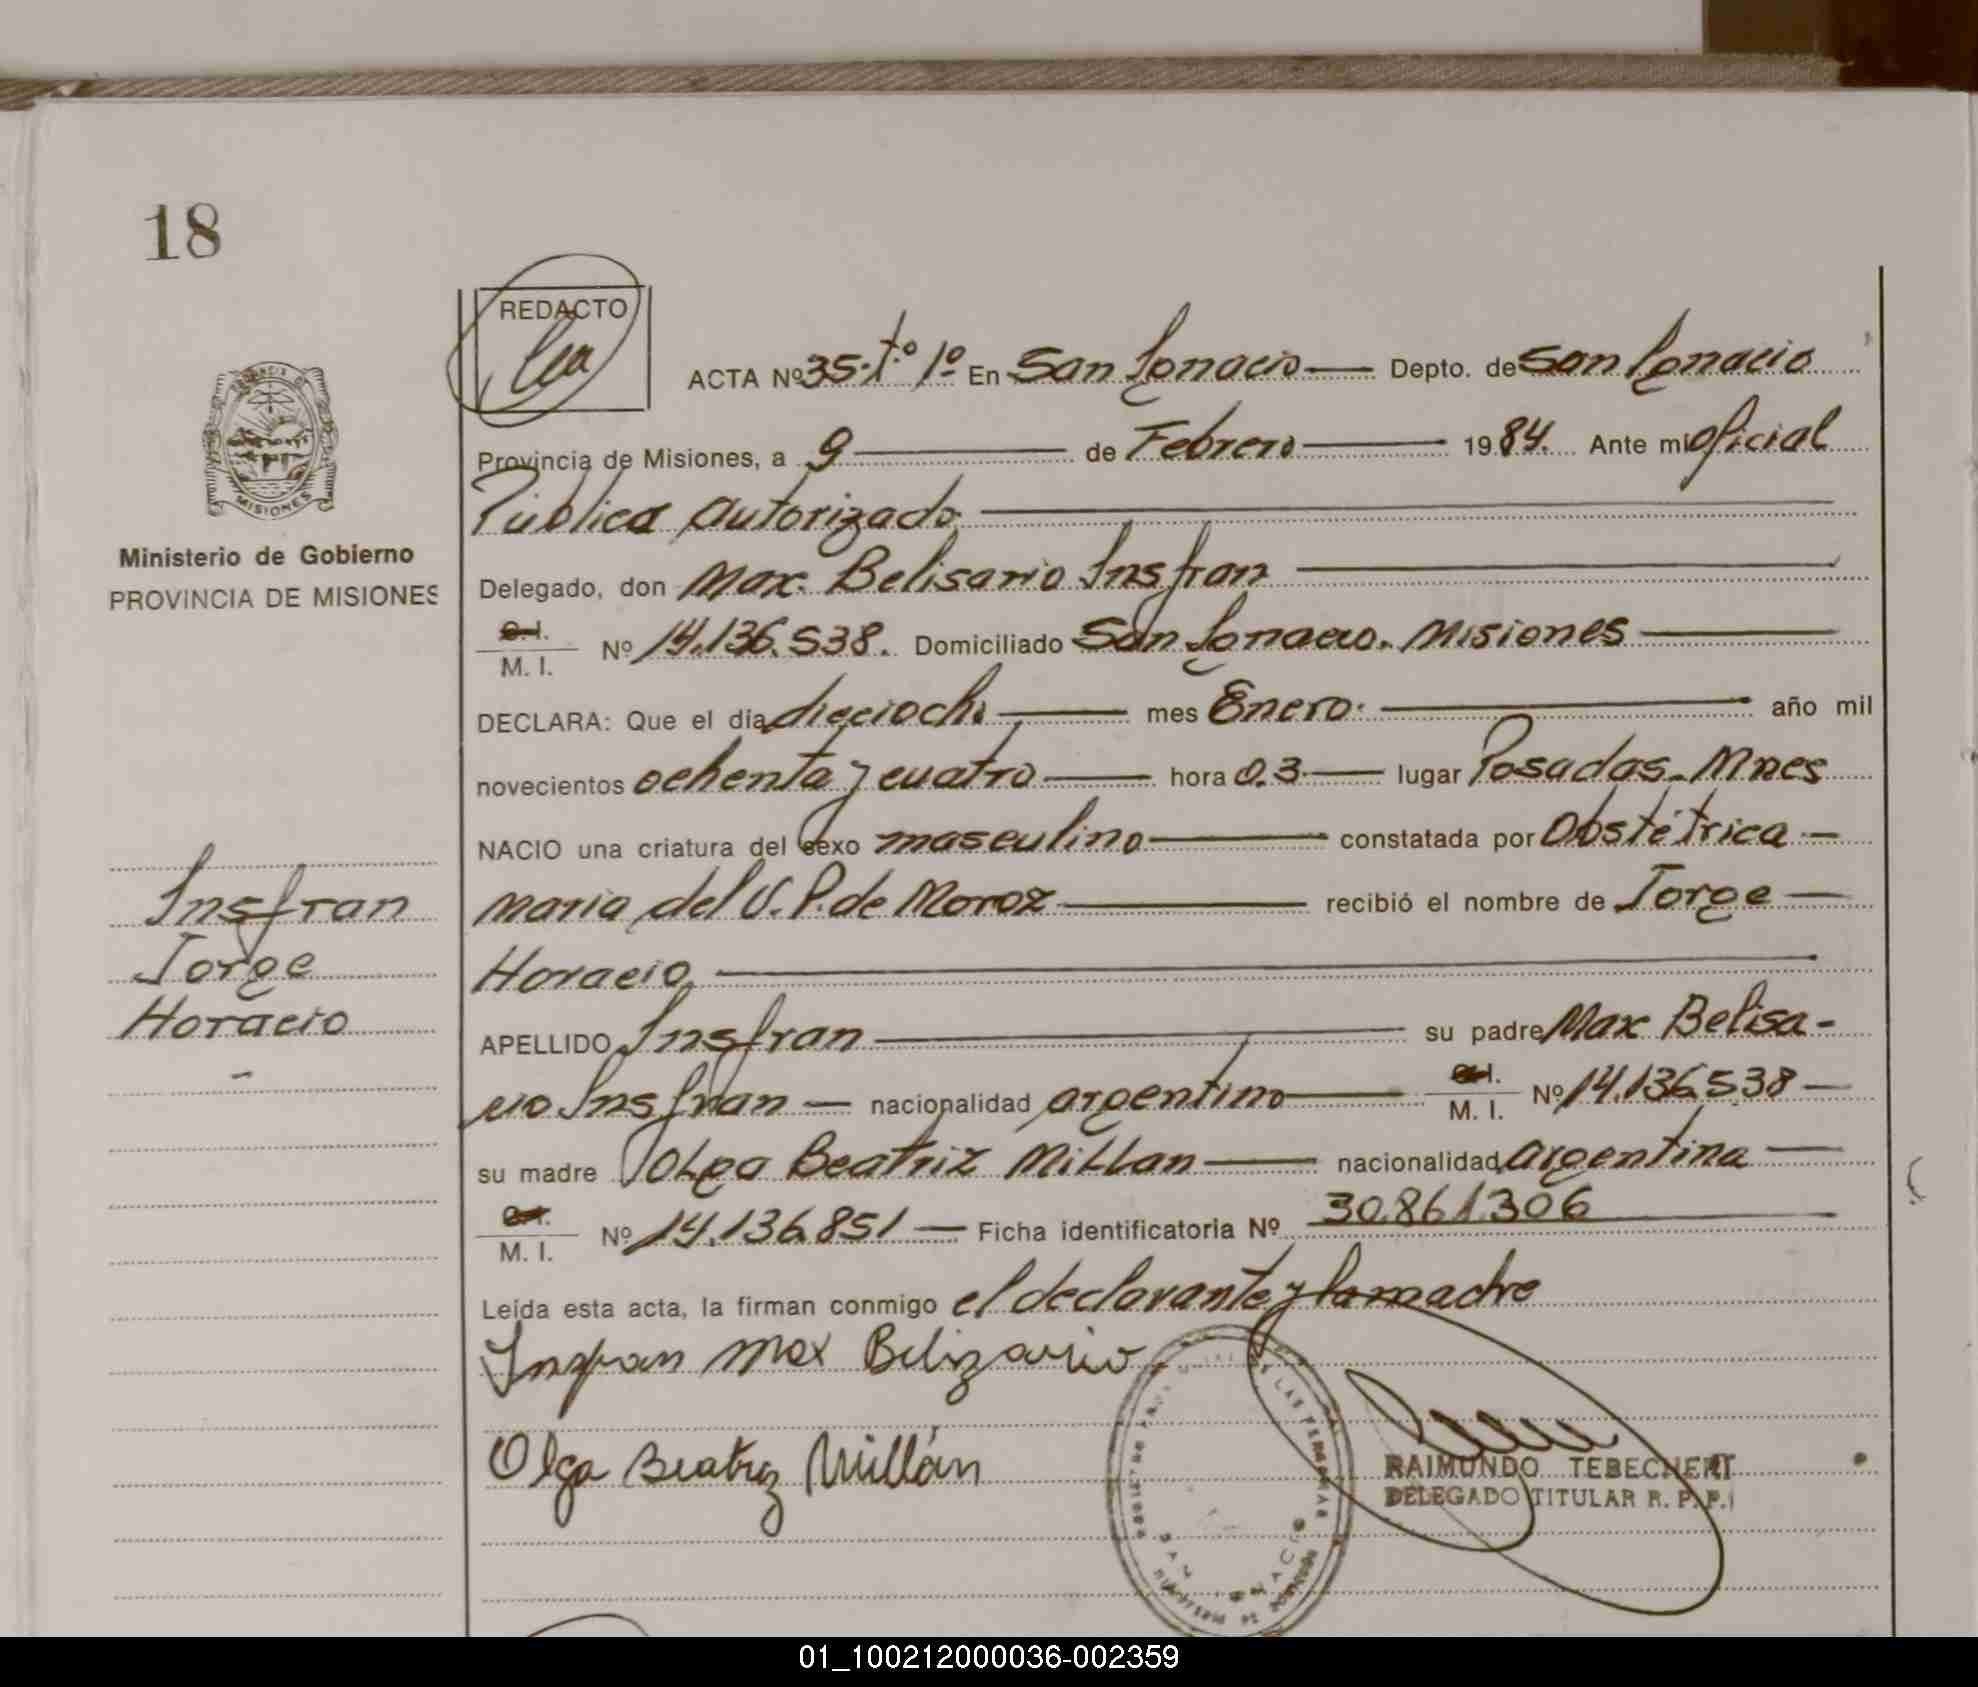 18
REDACTO
ACTA Nº 35.Tº 1º En San Ignacio Depto. de San Ignacio
Provincia de Misiones, a 9 de Febrero 1984. Ante mi Oficial
Público Autorizado
MISIONES
Ministerio de Gobierno
PROVINCIA DE MISIONES
Delegado, don Max. Belisario Insfran
C.I.
M. I. Nº 14.136.538. Domiciliado San Ignacio. Misiones
DECLARA: Que el día dieciocho mes Enero. año mil
novecientos ochenta y cuatro hora 0.3 lugar Posadas. Mnes
NACIO una criatura del sexo masculino constatada por Obstétrica
Maria del V. P. de Moroz recibió el nombre de Jorge
Horacio
Insfran
Jorge
Horacio
APELLIDO Insfran su padre Max Belisa-
rio Insfran nacionalidad argentino C.I. M. I. Nº 14.136.538
su madre Olga Beatriz Millan nacionalidad argentina
C.I.
M. I. Nº 14.136.851 Ficha identificatoria Nº 30.861.306
Leída esta acta, la firman conmigo el declarante y la madre
Insfran Max Belizario
Olga Beatriz Millán
RAIMUNDO TEBECHERI
DELEGADO TITULAR R. P. P.
DE LAS PERSONAS
SAN IGNACIO
01_100212000036-002359